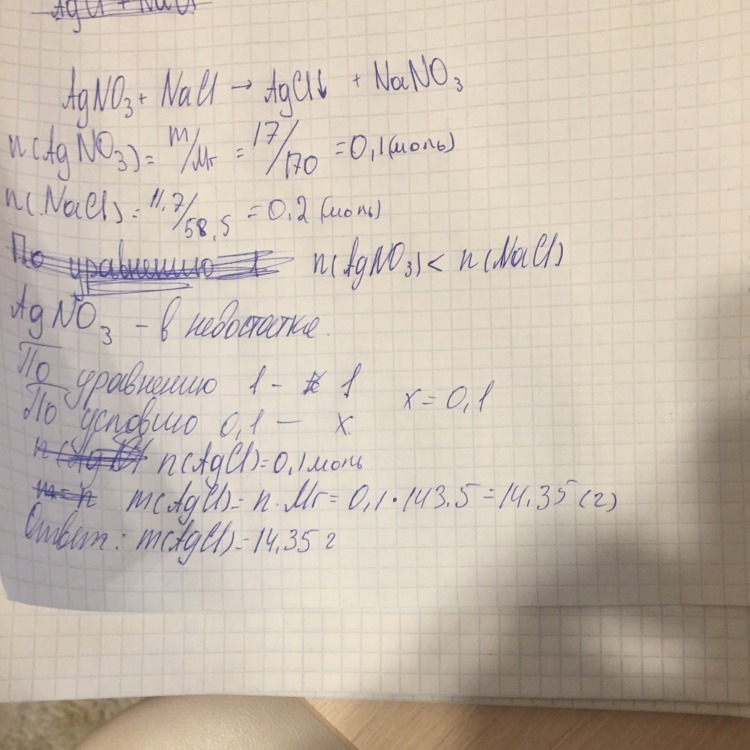 AgCl + NaCl
AgNO₃ + NaCl → AgCl↓ + NaNO₃
n(AgNO₃) = m/Mr = 17/170 = 0,1 (моль)
n(NaCl) = 11,7/58,5 = 0,2 (моль)
По уравнению 1 n(AgNO₃) < n(NaCl)
AgNO₃ - в недостатке.
По уравнению 1 - 1
По условию 0,1 - x x = 0,1
n(AgCl) n(AgCl) = 0,1 моль
m = n m(AgCl) = n · Mr = 0,1 · 143,5 = 14,35 (г)
Ответ: m(AgCl) = 14,35 г